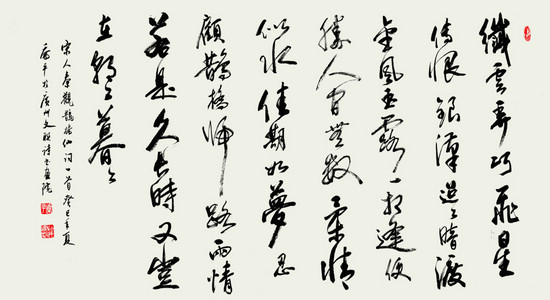 纖雲弄巧飛星
傳恨銀漢迢〻暗渡
金風玉露一相逢便
勝人间無数柔情
似水佳期如夢忍
顧鵲橋歸路兩情
若是久長時又豈
在朝〻暮〻
宋人秦觀鵲橋仙词一首癸巳年夏
於廣州文联詩書画院